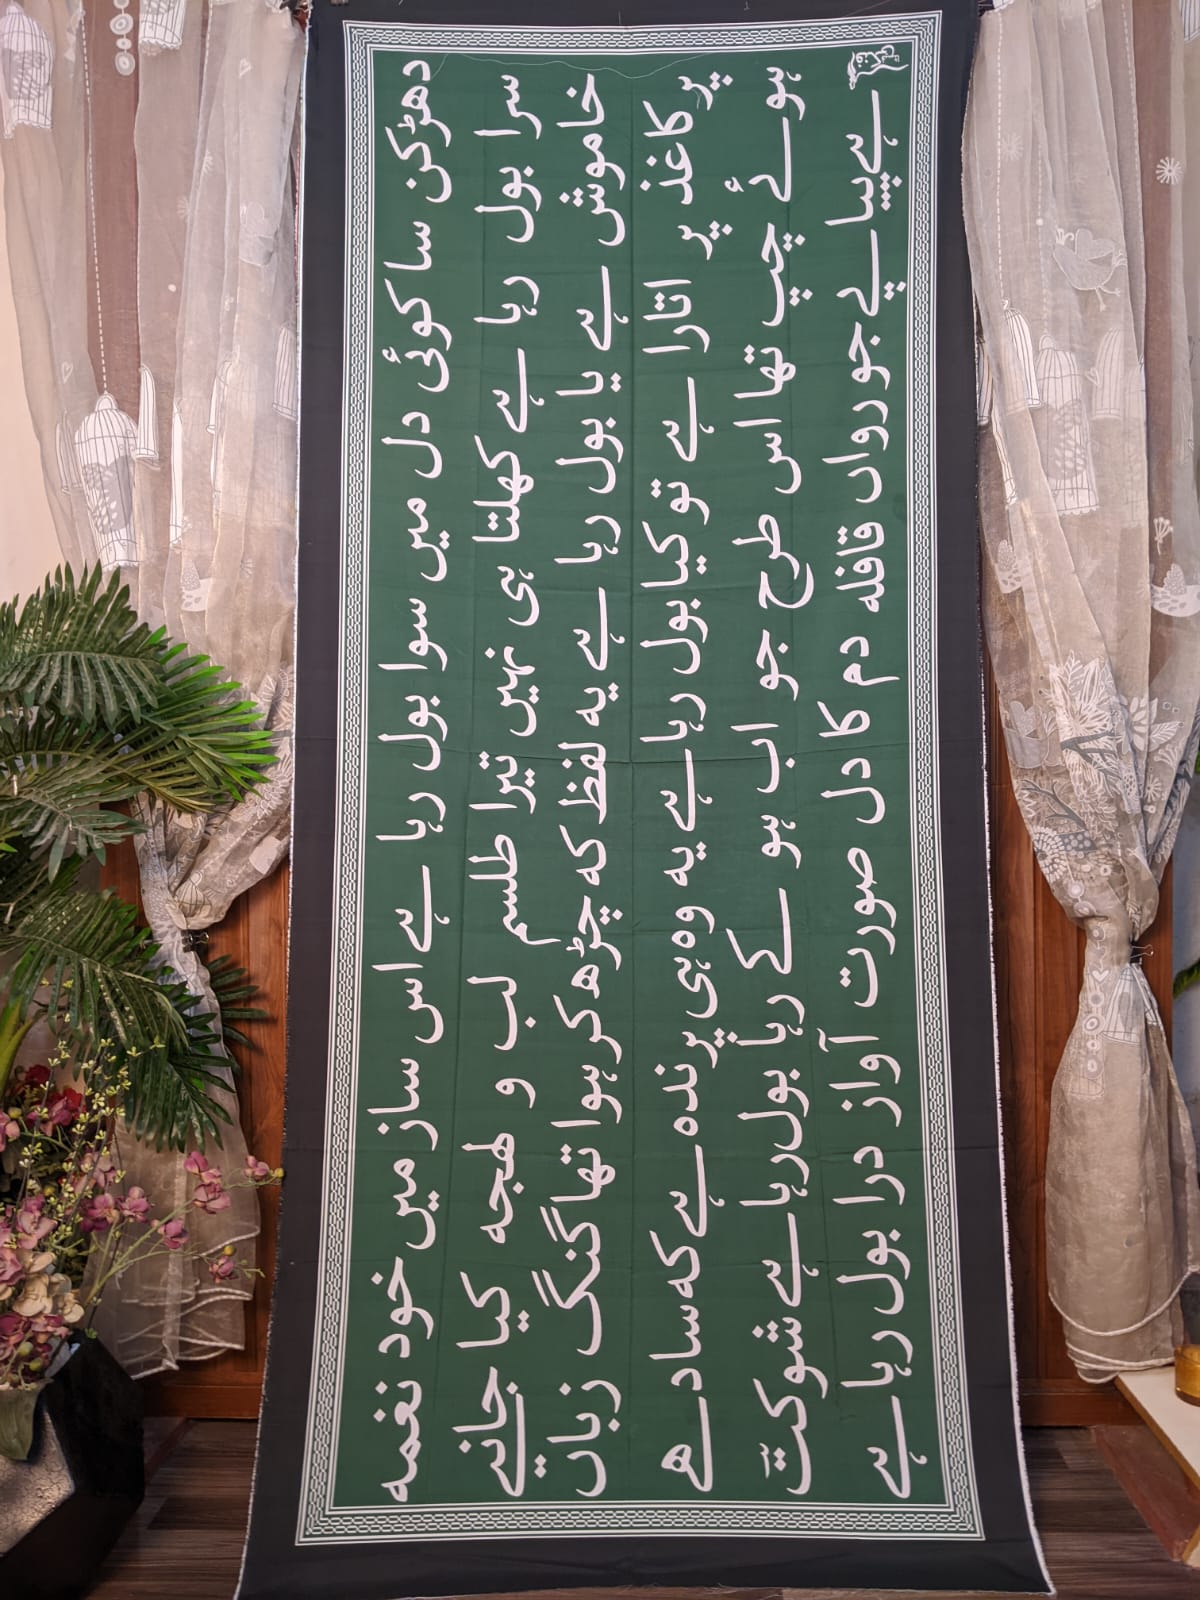 دھڑکن سا کوئی دل میں سوا بول رہا ہے اس ساز میں خود نغمہ
سرا بول رہا ہے کھلتا ہی نہیں تیرا طلسم لب و لهجه کیا جانیے
خاموش ہے یا بول رہا ہے یہ لفظ کہ چڑھ کر ہوا تھا گنگ زباں
پر کاغذ پر اتارا ہے تو کیا بول رہا ہے یہ وہ ہی پرندہ ہے کہ سادھے
ہوئے چپ تھا اس طرح جو اب ہو کے رہا بول رہا ہے شوکتؔ
ہے پیاپے جو رواں قافلہ دم کا دل صورت آواز درا بول رہا ہے